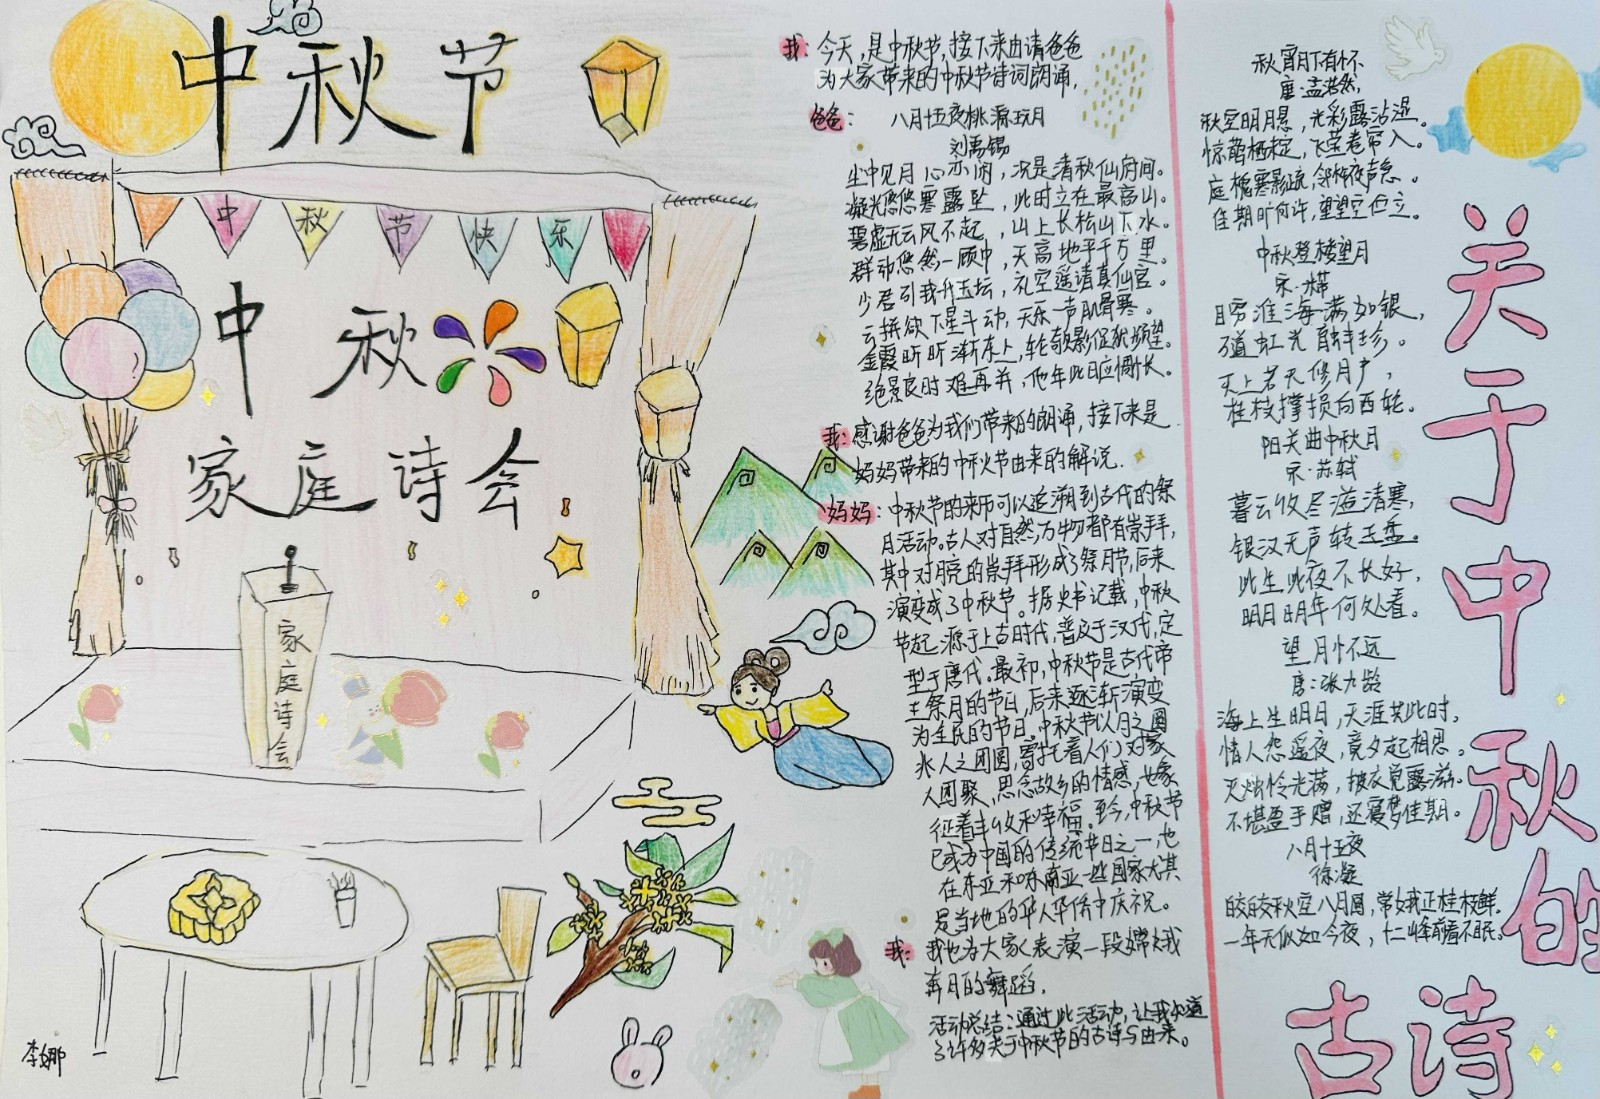 中秋节
中秋节快乐
中秋
家庭诗会
家庭诗会
李娜
我：今天，是中秋节，接下来由请爸爸
为大家带来的中秋节诗词朗诵。
爸爸：八月十五夜桃源玩月
刘禹锡
尘中见月心亦闲，况是清秋仙府间。
凝光悠悠寒露坠，此时立在最高山。
碧虚无云风不起，山上长松山下水。
群动悠然一顾中，天高地平千万里。
少君引我升玉坛，礼空遥请真仙官。
云拼欲下星斗动，天乐一声肌骨寒。
金霞昕昕渐东上，轮欹影促犹频望。
绝景良时难再并，他年此日应惆怅。
我：感谢爸爸为我们带来的朗诵，接下来是
妈妈带来的中秋节由来的解说。
妈妈：中秋节的来历可以追溯到古代的祭
月活动。古人对自然，万物都有崇拜，
其中对月亮的崇拜形成了祭月节，后来
演变成了中秋节。据史书记载，中秋
节起源于上古时代，普及于汉代，定
型于唐代。最初，中秋节是古代帝
王祭月的节日，后来逐渐演变
为全民的节日。中秋节以月之圆
兆人之团圆，寄托着人们对家
人团聚，思念故乡的情感，也象
征着丰收和幸福。至今，中秋节
已成为中国的传统节日之一，也
在东亚和东南亚一些国家尤其
是当地的华人华侨中庆祝。
我：我也为大家表演一段嫦娥
奔月的舞蹈。
活动总结：通过此活动，让我知道
了许多关于中秋节的古诗与由来。
秋宵月下有怀
唐：孟浩然，
秋空明月悬，光彩露沾湿。
惊鹊栖未定，飞萤卷帘入。
庭槐寒影疏，邻杵夜声急。
佳期旷何许，望望空伫立。
中秋登楼望月
宋·米芾
目穷淮海满如银，
道虹光育蚌珍。
天上若无修月户，
桂枝撑损向西轮。
阳关曲中秋月
宋·苏轼
暮云收尽溢清寒，
银汉无声转玉盘。
此生此夜不长好，
明月明年何处看。
望月怀远
唐：张九龄
海上生明月，天涯共此时，
情人怨遥夜，竟夕起相思。
灭烛怜光满，披衣觉露滋。
不堪盈手赠，还寝梦佳期。
八月十五夜
徐凝
皎皎秋空八月圆，常娥正桂枝鲜。
一年无似如今夜，十二峰前看不眠。
关于中秋的
古诗